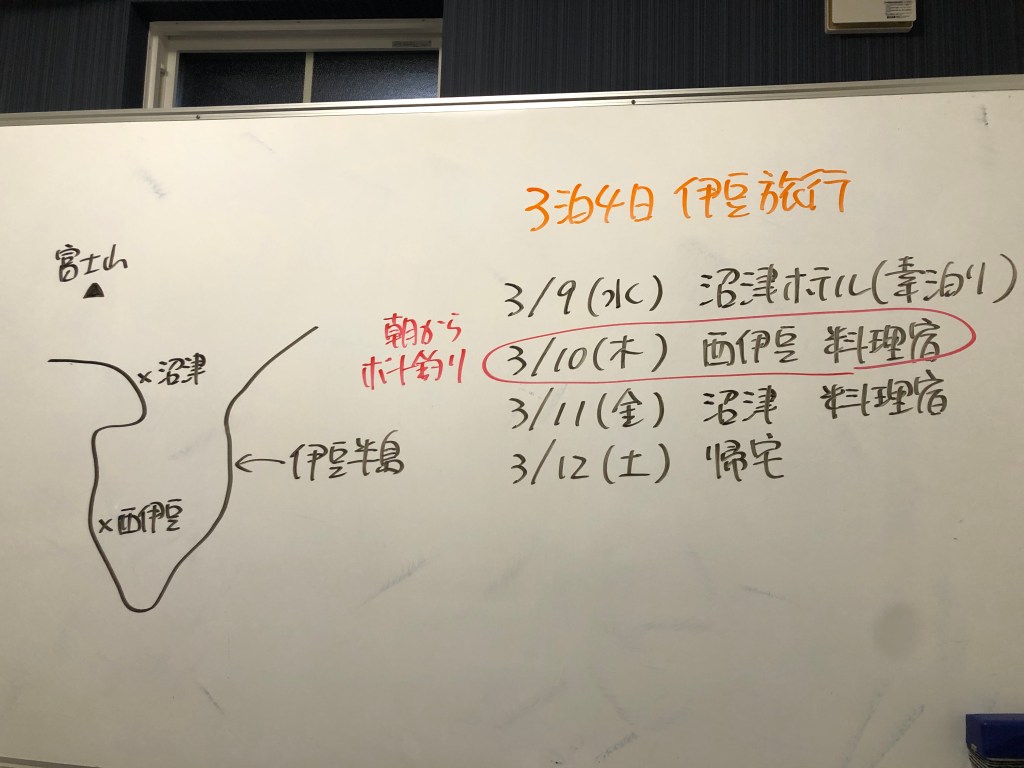 3泊4日 伊豆旅行
富士山
沼津
西伊豆
伊豆半島
朝から
ボート釣り
3/9(水) 沼津ホテル(素泊り)
3/10(木) 西伊豆 料理宿
3/11(金) 沼津 料理宿
3/12(土) 帰宅